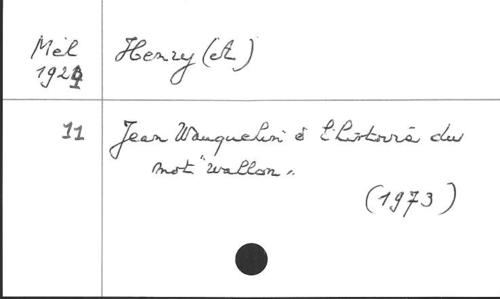 Mél Henry (A)
1921
11 Jean Wauquelin & l'histoire du
mot "wallon"
(1973)